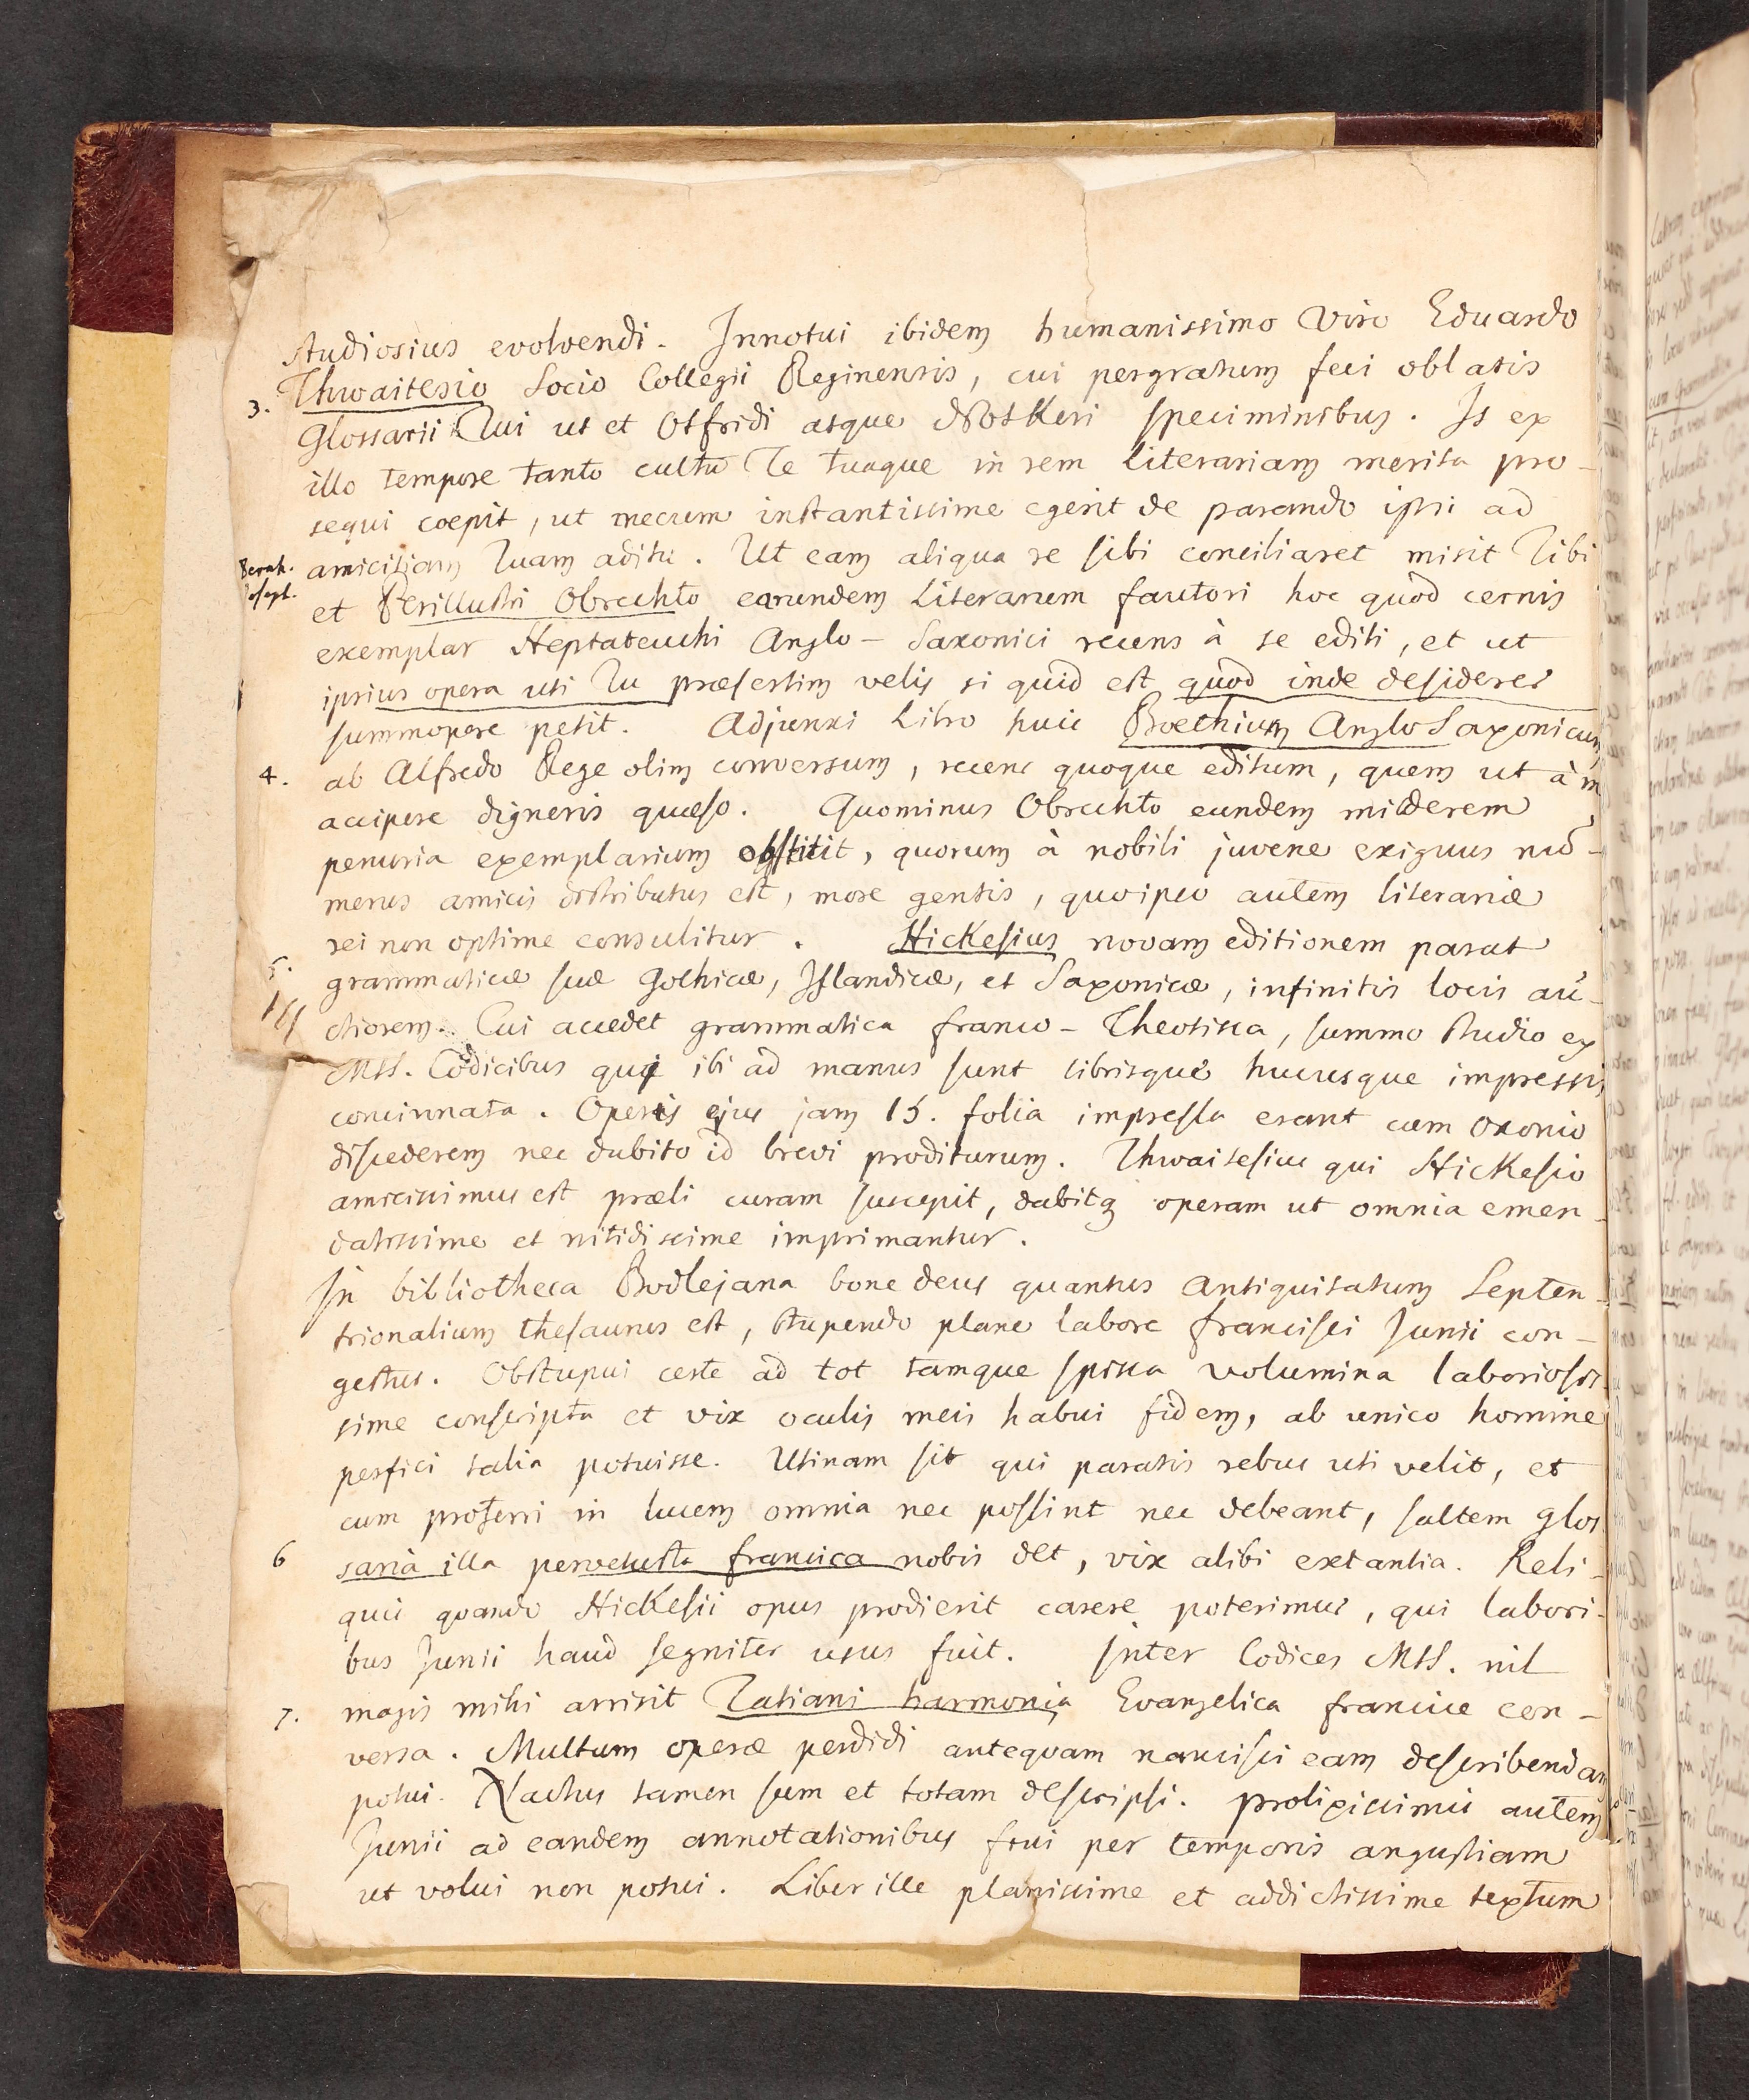 studiosius evolvendi. Innotui ibidem humanissimo Viro Eduardo
3. Thwaitesio Socio Collegii Reginensis, cui pergratum feci oblatis
Glossarii Tui ut et Otfridi atque Notkeri speciminibus. Is ex
illo tempore tanto cultu Te tuaque in rem literariam merita pro-
sequi coepit, ut mecum instantissime egerit de parando ipsi ad
amicitiam Tuam aditu. Ut eam aliqua re sibi conciliaret misit Tibi
et Perillustri Obrechto earundem Literarum fautori hoc quod cernis
exemplar Heptateuchi Anglo-Saxonici recens à se editi, et ut
ipsius opera uti Tu præsertim velis si quid est quod inde desideres
summopere petit. Adjunxi Libro huic Boethium Anglo Saxonicum
4. ab Alfredo Rege olim conversum, recens quoque editum, quem ut à m
accipere digneris quæso. Quominus Obrechto eundem mitterem
penuria exemplarium obstitit, quorum à nobili juvene exiguus nu-
merus amicis distributus est, more gentis, quo ipso autem literariæ
rei non optime consulitur. Hickesius novam editionem parat
5. grammaticæ suæ Gothicæ, Islandicæ, et Saxonicæ, infinitis locis au-
ctiorem. Cui accedet grammatica franco-Theotisca, summo studio ex
MSS. Codicibus qui ibi ad manus sunt librisque hucusque impressis
concinnata. Operis ejus jam 15. folia impressa erant cum Oxonio
discederem nec dubito id brevi proditurum. Thwaitesius qui Hickesio
amicissimus est præli curam suscepit, dabitq operam ut omnia emen-
datissime et nitidissime imprimantur.
In bibliotheca Bodlejana bone deus quantus Antiquitatum Septen-
trionalium thesaurus est, stupendo plane labore francisci Junii con-
gestus. Obstupui certe ad tot tamque spissa volumina laboriosis
sime conscripta et vix oculis meis habui fidem, ab unico homine
perfici talia potuisse. Utinam sit qui paratis rebus uti velit, et
cum proferri in lucem omnia nec possint nec debeant, saltem glos
6 saria illa pervetusta francica nobis det, vix alibi extantia. Reli-
quis quando Hickesii opus prodierit carere poterimus, qui labori-
bus Junii haud segniter usus fuit. Inter Codices MSS. nil
7. magis mihi arrisit Tatiani harmonia Evangelica francice con-
versa. Multum operæ perdidi antequam nancisci eam describendam
potui. Nactus tamen sum et totam descripsi. prolixissimis autem
Junii ad eandem annotationibus frui per temporis angustiam
ut volui non potui. Liber ille planissime et addictissime textum